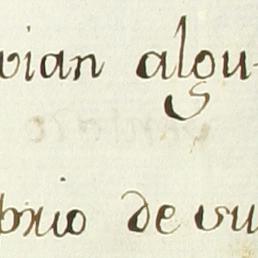 vian algu-
brio de su